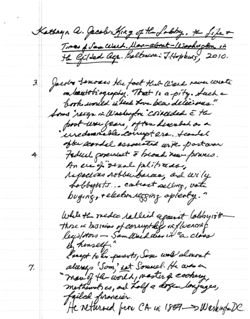 Kathryn A. Jacob King of the Lobby, the Life &
Times of Sam Ward, Man-about-Washington in
the Gilded Age. Baltimore: J. Hopkins 2010.
3. Jacob the fact that Ward never wrote
an autobiography. That is a pity. Such a
book would have been delicious."
Sam's reign in Washington coincided c the
post-war years, often as an
irredeemably corrupt era. Scandal
after scandal associated with postwar
4 Federal government & broad new powers.
An era of venal politicians,
rapacious robber barons, and wily
lobbyists... vote selling, vote
buying, & electioneering
While the media railed against lobbyists
those in business of corruptly influencing
legislators — Sam Ward was in "a class
by himself."
Except to his parents, Sam was almost
always 'Sam,' not Samuel. He was a
7. "man of the world, master of
mathematics, and half a dozen languages,
failed financier
He returned from CA in 1859 → Washington DC